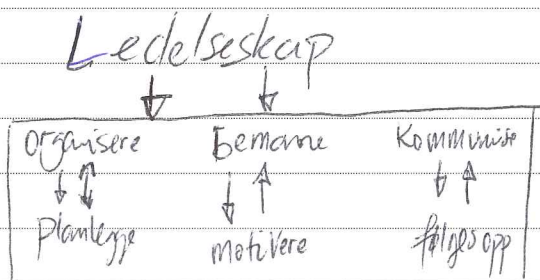 Ledelseskap
organisere bemanne Kommunisere
planlegge motivere følges opp